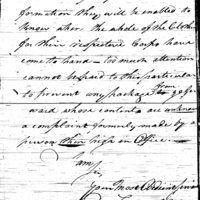 formation they will be enabled to
know when the whole of the Clothing
for their respective Corps have
come to hand — Too much attention
cannot be paid to this particular
to prevent any package from
ward whose contents are unknown
a complaint formerly made by a
person in Office —
I am
Sir
Your Most Obedient